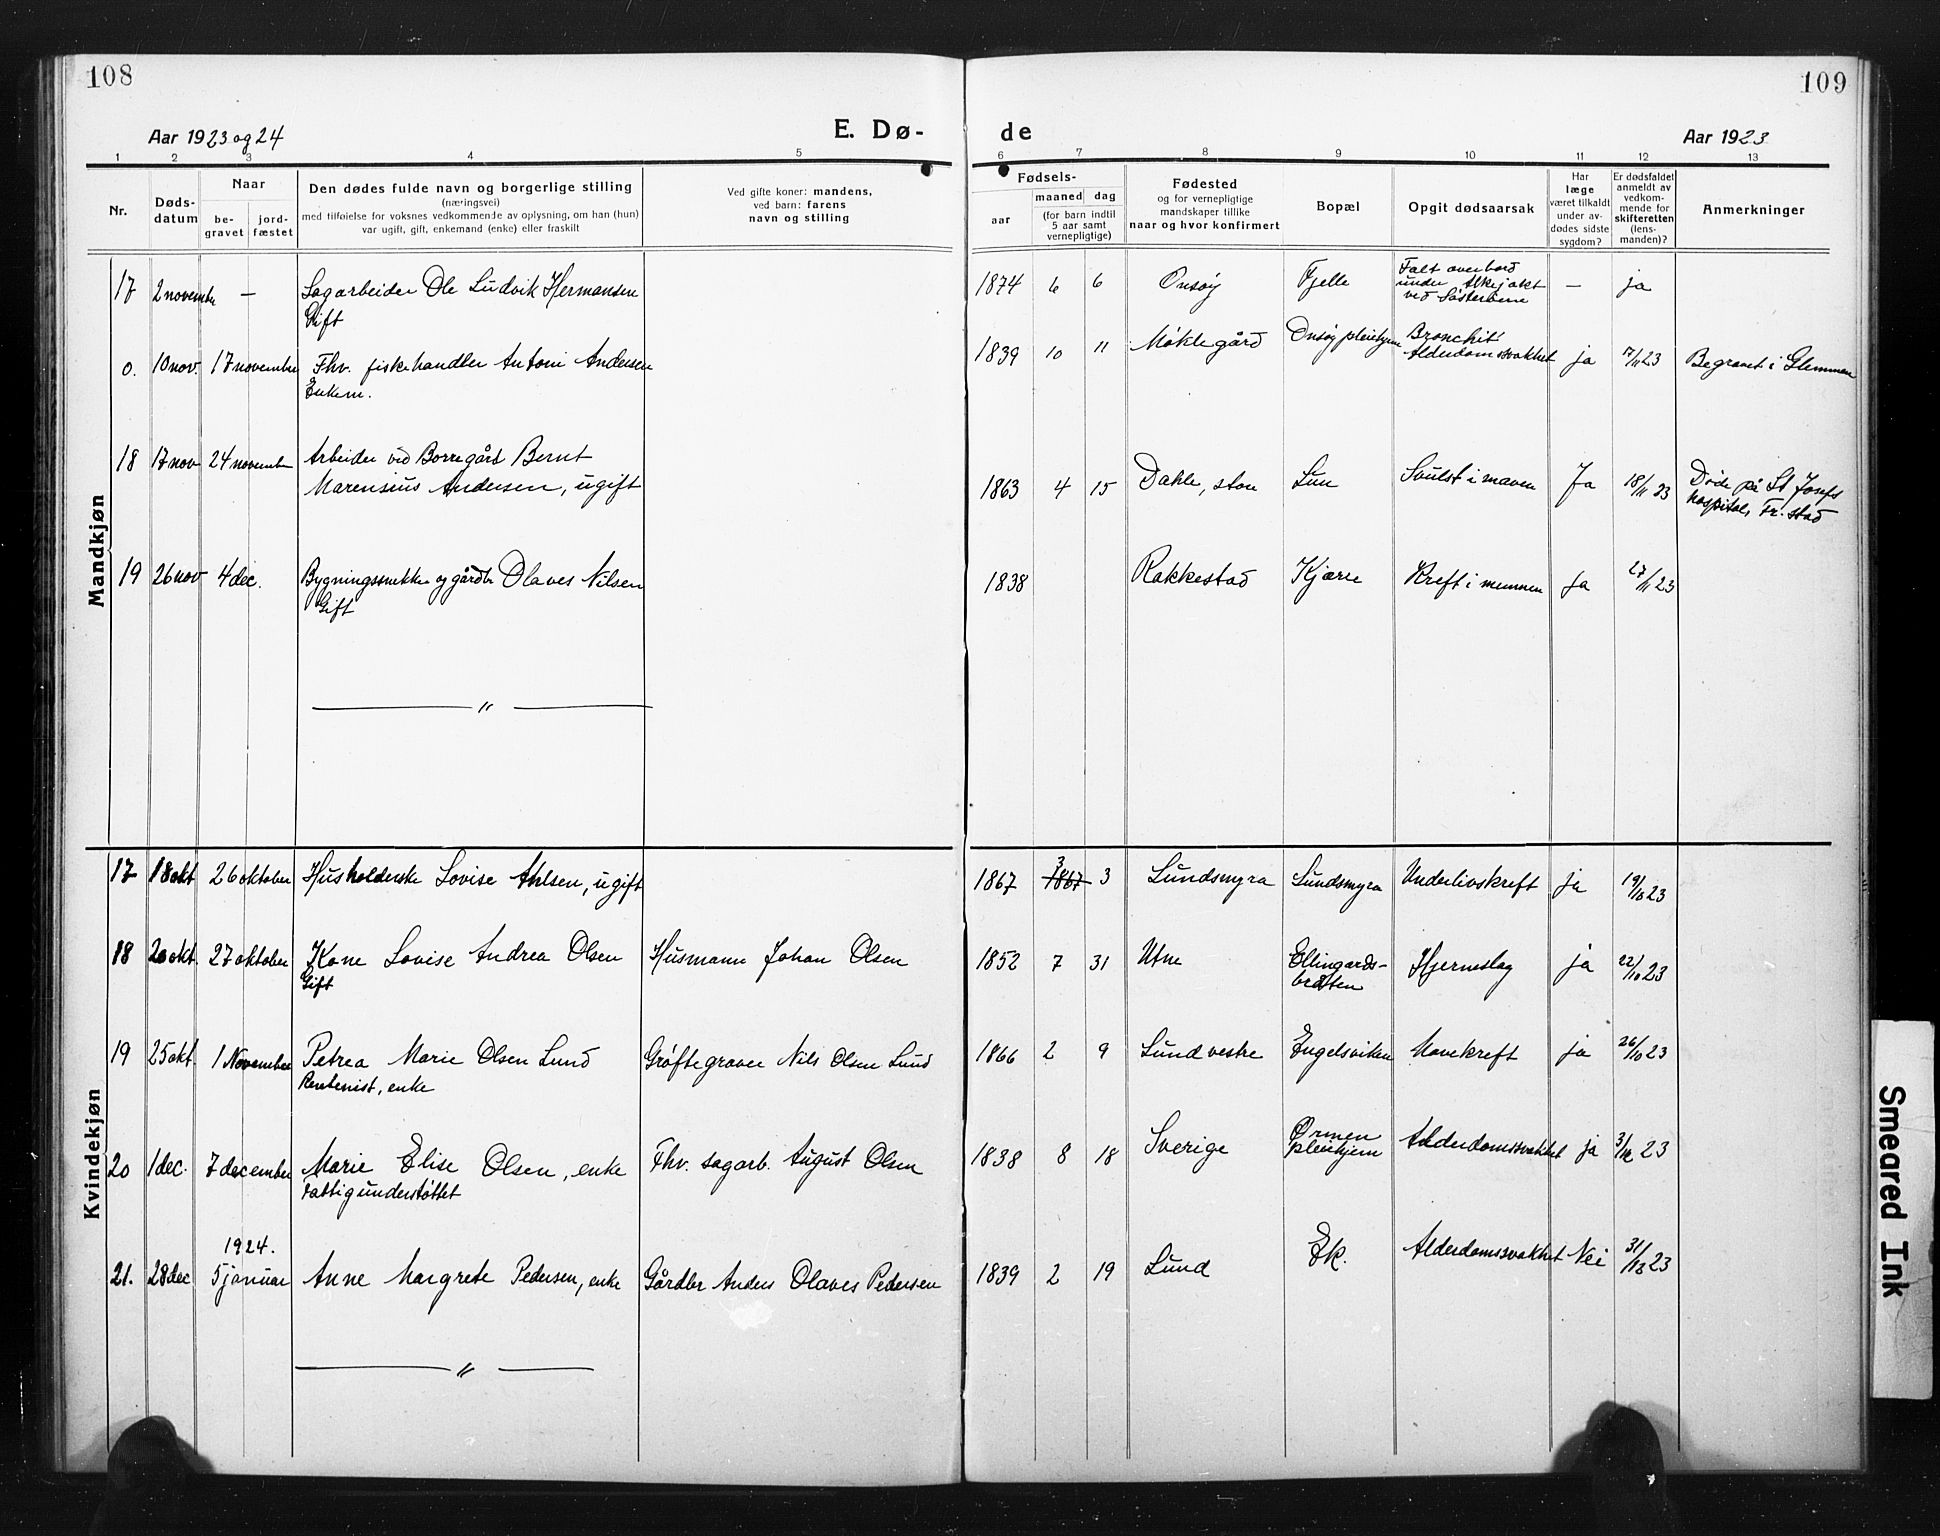 108
109
Aar 1923 og 24
E. Dø-
de
Aar 1923
1 2 3 4 5 6 7 8 9 10 11 12 13
Nr.
Døds-
datum
Naar
be-
gravet
jord-
fæstet
Den dødes fulde navn og borgerlige stilling
(næringsvei)
med tilføielse for voksnes vedkommende av oplysning, om han (hun)
var ugift, gift, enkemand (enke) eller fraskilt
Ved gifte koner: mandens,
ved barn: farens
navn og stilling
Fødsels-
aar
maaned dag
(for barn indtil
5 aar samt
vernepligtige)
Fødested
og for vernepligtige
mandskaper tillike
naar og hvor konfirmert
Bopæl
Opgit dødsaarsak
Har
læge
været tilkaldt
under av-
dødes sidste
sygdom?
Er dødsfaldet
anmeldt av
vedkom-
mende for
skifteretten
(lens-
manden)?
Anmerkninger
Mandkjøn
17 2 november — Sagarbeider Ole Ludvik Hermansen
Gift
1874 6 6 Onsøy Fjelle Falt overbord
under Alkejakt
ved Søsterøene
— ja
0. 10 nov. 17 november Fhv. fiskehandler Antoni Andersen
Enkem.
1839 10 11 Møklegård Onsøy pleiehjem Bronchit
Alderdomssvakhet ja 17/11 23 Begravet i Glemmen
18 17 nov 24 november Arbeider ved Borregård Bernt
Marensius Andersen, ugift
1863 4 15 Dahle, store Lun Svulst i maven Ja 18/11 23 Døde på St Josefs
hospital, Fr.stad
19 26 nov 4 dec. Bygningssnekker og gårdbr Olaves Nilsen
Gift
1838 Rakkestad Kjære Kreft i munnen Ja 27/11 23
— " —
Kvindekjøn
17 18 okt 26 oktober Husholderske Lovise Ahlsen, ugift
1867 3 1867 3 Lundsmyra Lundsmyra Underlivskreft ja 19/10 23
18 20 okt. 27 oktober Kone Lovise Andrea Olsen
Gift
Husmann Johan Olsen
1852 7 31 Utne Ellingårds-
bråten
Hjerneslag ja 22/10 23
19 25 okt. 1 November Petrea Marie Olsen Lund
Rentenist, enke
Grøftegraver Nils Olsen Lund
1866 2 9 Lund vestre Engelsviken Mavekreft ja 26/10 23
20 1 dec. 7 december Marie Elise Olsen, enke
Fattigunderstøttet
Fhv. sagarb. August Olsen
1838 8 18 Sverige Ørmen
pleiehjem
Alderdomssvakhet ja 3/12 23
1924.
21. 28 dec 5 januar Anne Margrete Pedersen, enke Gårdbr Anders Olaves Pedersen
1839 2 19 Lund Ek. Alderdomssvakhet Nei 31/12 23
— " —
Smeared Ink